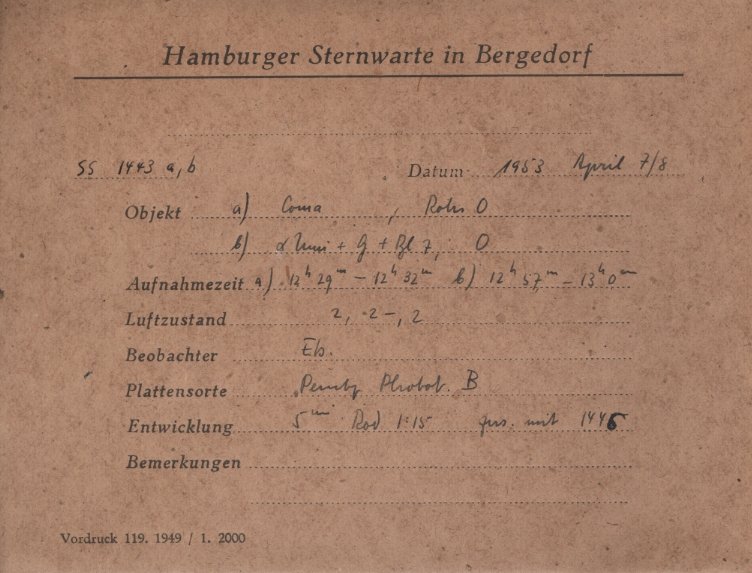 Hamburger Sternwarte in Bergedorf
SS 1443 a, b Datum 1953 April 7/8
Objekt a) Coma , Rohr O
b) α Umi + G + Bl 7, O
Aufnahmezeit a) 12h 29m – 12h 32m b) 12h 57m – 13h 0m
Luftzustand 2, 2–, 2
Beobachter
Plattensorte Perutz B
Entwicklung 5m Rod 1:15 mit
Bemerkungen
Vordruck 119. 1949 / 1. 2000